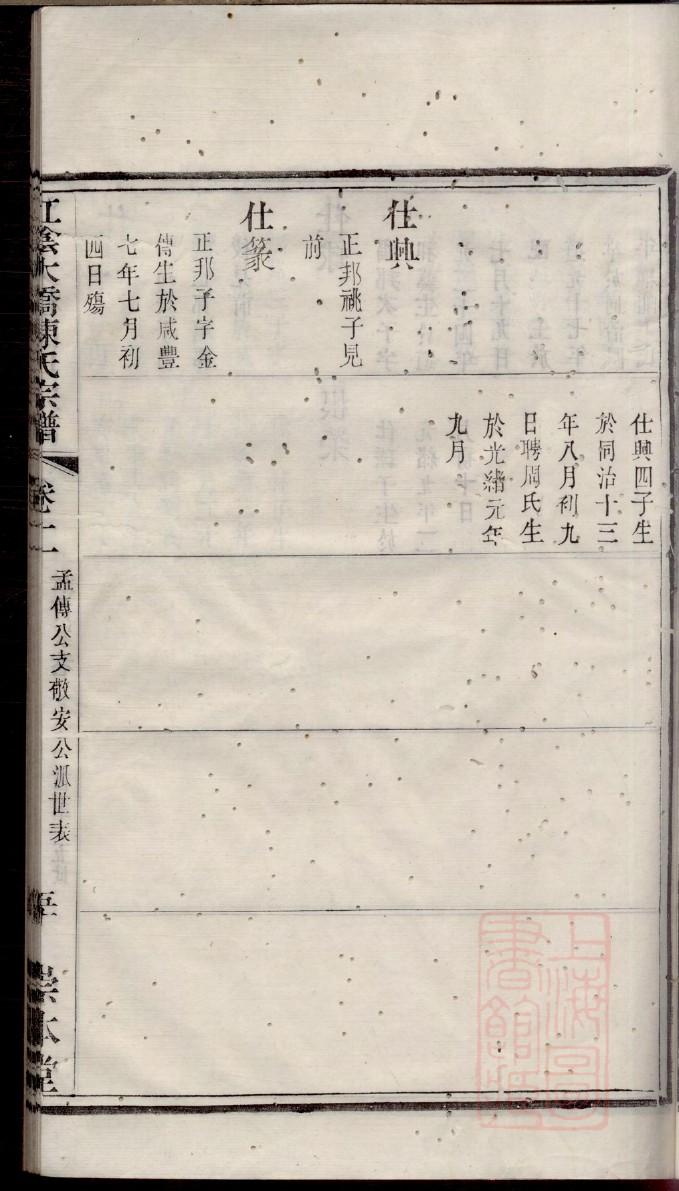 仕興
正邦祧子見
前
仕篆
正邦子字金
傳生於咸豐
七年七月初
四日殤
仕興四子生
於同治十三
年八月初九
日聘周氏生
於光緒元年
九月
江陰大橋陳氏宗譜
卷十一
孟傳公支敬安公派世表
崇本堂
上海圖
書館藏